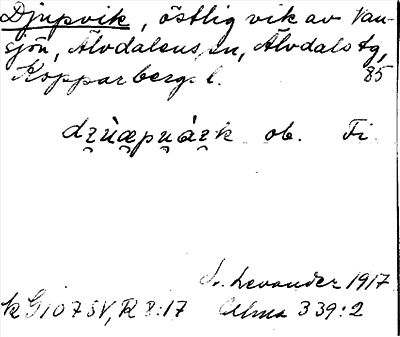 Djupvik, östlig vik av Van-
sjön, Älvdalens sn, Älvdals tg,
Kopparbergs l. 85
ob. Fi.
L. Levander 1917
k G107 SV, R 8:17 Ulma 339:2